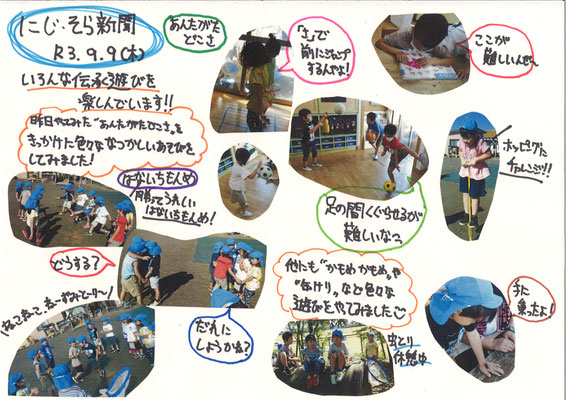 にじ・そら新聞
R3.9.9(木)
いろんな伝承遊びを
楽しんでいます!!
昨日やってみた"あんたがたどこさ"を
きっかけに色々ななつかしいあそびを
してみました!
あんたがた
どこさ
「さ」で
前にジャンプ
するんだよ!
ここが
難しいんだよ
ホッピングに
チャレンジ!!
足の間くぐらせるが
難しいなっ
はないちもんめ
勝ってうれしい
はないちもんめ!
どうする?
だれに
しようかな?
他にも"かもめかもめ"や
"缶けり"など色々な
遊びをやってみました
虫とり
休憩中
手に
乗ったよ!